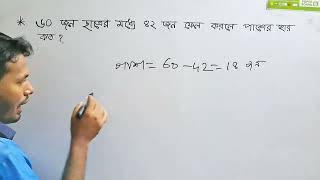 * ৬০ জন ছাত্রের মধ্যে ৪২ জন ফেল করলে পাশের হার
কত ?
পাশ = 60 - 42 = 18 জন